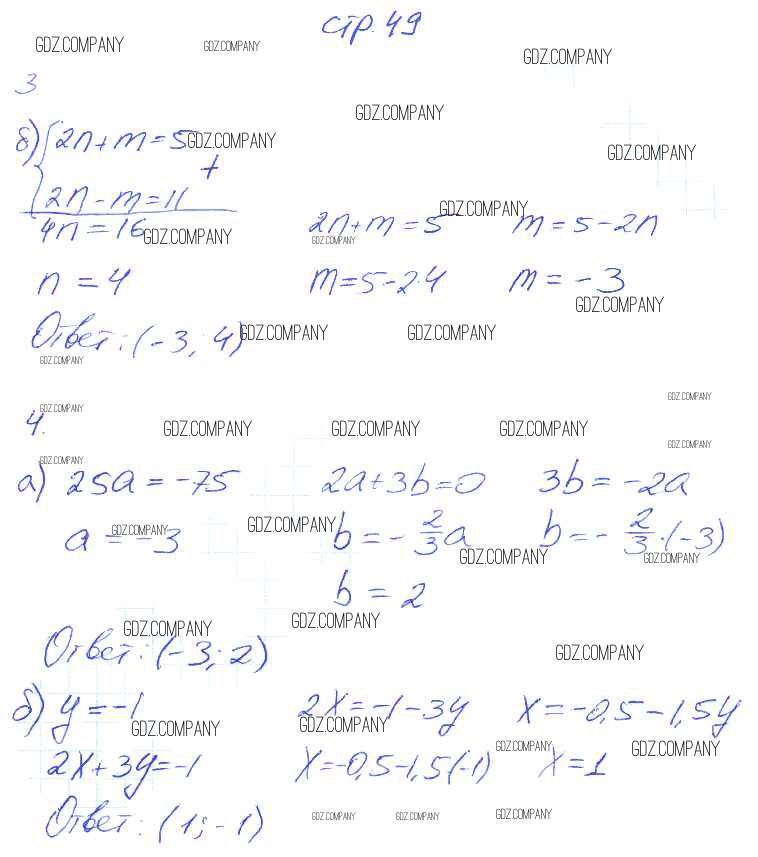 стр. 49
GDZ.COMPANY GDZ.COMPANY GDZ.COMPANY
3
GDZ.COMPANY
б) { 2n + m = 5 GDZ.COMPANY
+ GDZ.COMPANY
2n - m = 11
GDZ.COMPANY
4n = 16 GDZ.COMPANY 2n + m = 5 m = 5 - 2n
GDZ.COMPANY
n = 4 m = 5 - 2·4 m = -3
GDZ.COMPANY
Ответ: (-3; 4) GDZ.COMPANY GDZ.COMPANY
GDZ.COMPANY
GDZ.COMPANY
GDZ.COMPANY
4. GDZ.COMPANY GDZ.COMPANY GDZ.COMPANY
GDZ.COMPANY
GDZ.COMPANY
а) 25a = -75 2a + 3b = 0 3b = -2a
GDZ.COMPANY GDZ.COMPANY
a = -3 b = - 2/3 a b = - 2/3 · (-3)
GDZ.COMPANY GDZ.COMPANY
b = 2
GDZ.COMPANY GDZ.COMPANY
Ответ: (-3; 2) GDZ.COMPANY
б) y = -1 2x = -1 - 3y x = -0,5 - 1,5y
GDZ.COMPANY GDZ.COMPANY
GDZ.COMPANY GDZ.COMPANY
2x + 3y = -1 x = -0,5 - 1,5(-1) x = 1
Ответ: (1; -1) GDZ.COMPANY GDZ.COMPANY GDZ.COMPANY